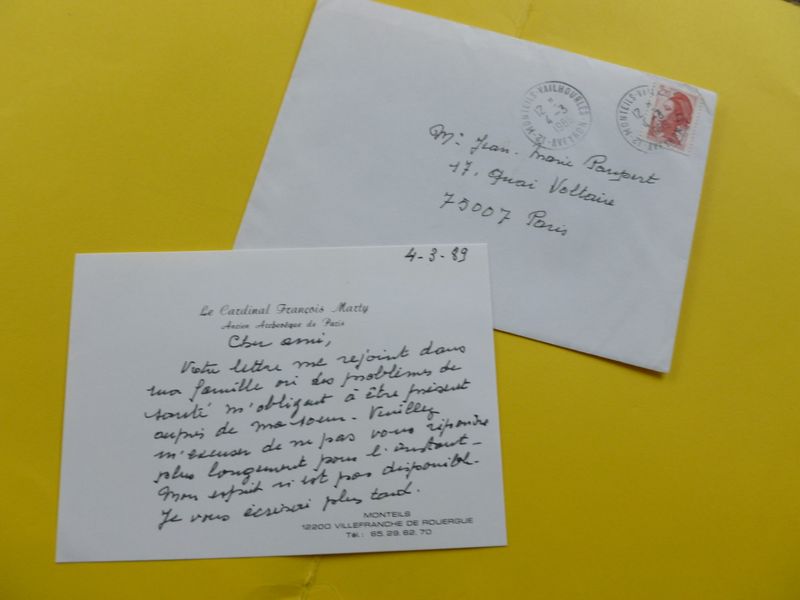 MONTEILS-VAILHOURLES
12-AVEYRON
MONTEILS-VAI
Mr Jean-Marie Paupert
17, Quai Voltaire
75007 Paris
4-3-89
Le Cardinal François Marty
Ancien Archevêque de Paris
Cher ami,
Votre lettre me rejoint dans
ma famille où des problèmes de
santé m'obligent à être présent
auprès de ma soeur. Veuillez
m'excuser de ne pas vous répondre
plus longuement pour l'instant.
Mon esprit n'est pas disponible.
Je vous écrirai plus tard.
MONTEILS
12200 VILLEFRANCHE DE ROUERGUE
Tél.: 65.29.62.70